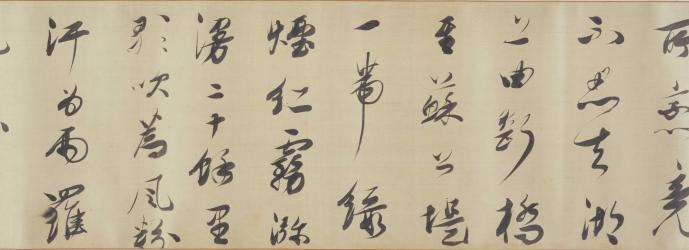 所戀竟
不忍去湖
上由斷橋
至蘇公堤
一帶綠
煙紅霧瀰
漫二十餘里
歌吹為風粉
汗為雨羅